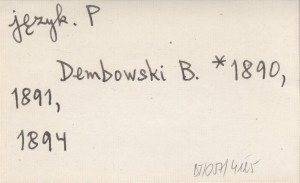 język. P
Dembowski B. *1890,
1891,
1894